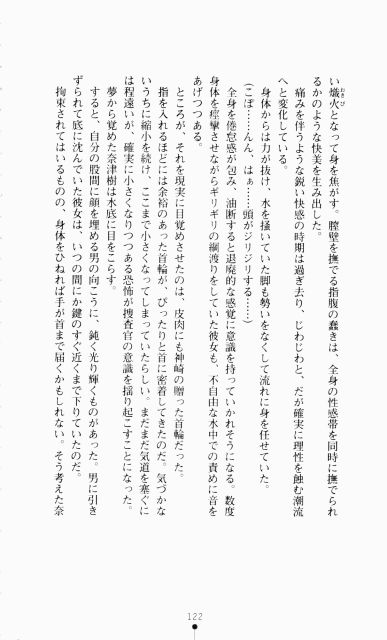 い熾火となって身を焦がす。膣壁を撫でる指腹の蠢きは、全身の性感帯を同時に撫でられ
るかのような快美を生み出した。
痛みを伴うような鋭い快感の時期は過ぎ去り、じわじわと、だが確実に理性を蝕む潮流
へと変化している。
身体からは力が抜け、水を掻いていた脚も勢いをなくして流れに身を任せていた。
(こぽ………んん、はぁ……頭がジリジリする……)
全身を倦怠感が包み、油断すると退廃的な感覚に意識を持っていかれそうになる。数度
身体を痙攣させながらギリギリの綱渡りをしていた彼女も、不自由な水中での責めに音を
あげつつある。
ところが、それを現実に目覚めさせたのは、皮肉にも神崎の贈った首輪だった。
指を入れるほどには余裕のあった首輪が、ぴったりと首に密着してきたのだ。気づかな
いうちに縮小を続け、ここまで小さくなってしまっていたらしい。まだまだ気道を塞ぐに
は程遠いが、確実に小さくなりつつある恐怖が捜査官の意識を揺り起こすことになった。
夢から覚めた奈津樹は水底に目をこらす。
すると、自分の股間に顔を埋める男の向こうに、鈍く光り輝くものがあった。男に引き
ずられて底に沈んでいた彼女は、いつの間にか鍵のすぐ近くまで下りていたのだ。
拘束されてはいるものの、身体をひねれば手が首まで届くかもしれない。そう考えた奈
122